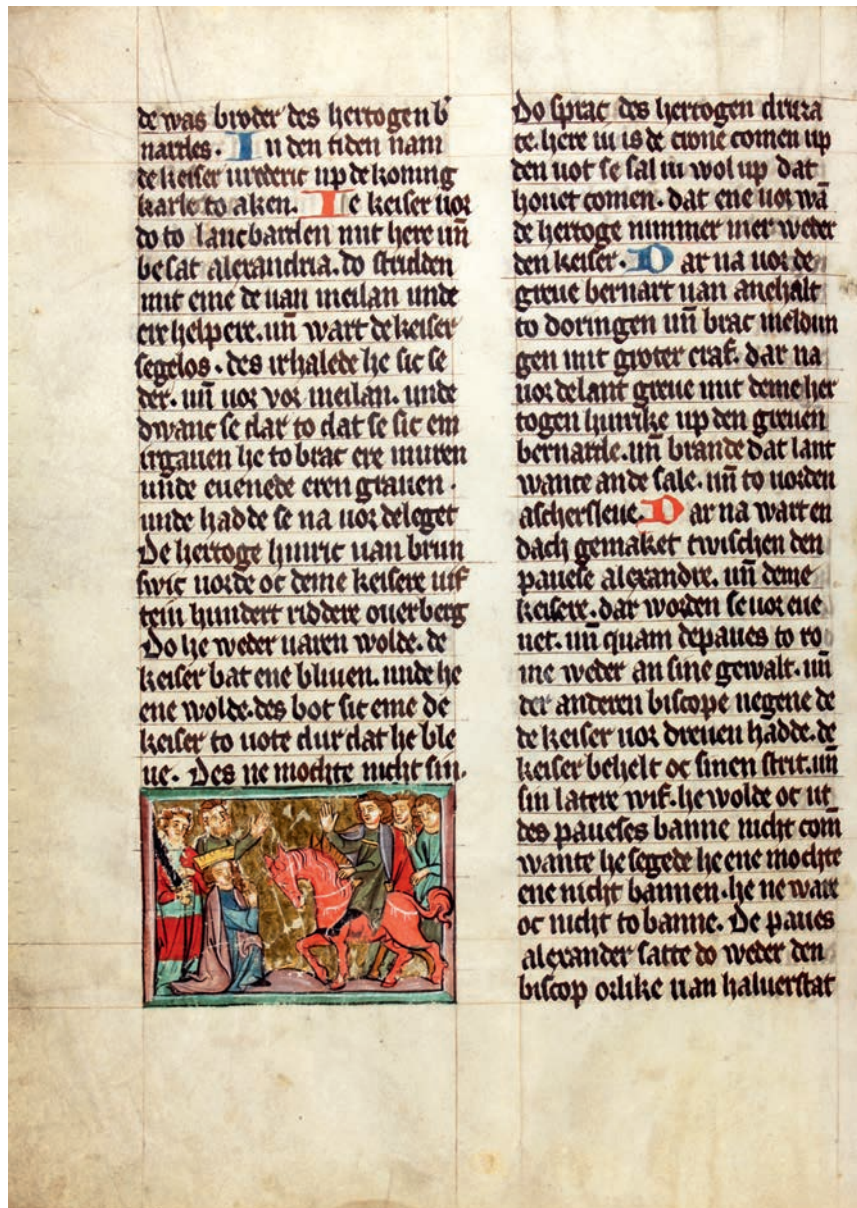 de was broder des hertogen b᷑
nardes. In den tiden nam
de keiser urederic up de koning
karle to aken. De keiser uor
do to lancbarden mit here un̄
besat alexandria. do stridden
mit eme de uan meilan unde
ere helpere. un̄ wart de keiser
segelos. des irhalede he sic se
der. un̄ uor vor meilan. unde
dwanc se dar to dat se sic em
irgauen he to brac ere muren
unde euenede eren grauen.
unde hadde se na uor deleget
De hertoge hinric uan brun
swic uorde oc deme keisere uif
tein hundert riddere ouerberg
Do he weder uaren wolde. de
keiser bat ene bliuen. unde he
ene wolde. des bot sic eme de
keiser to uote dur dat he ble
ue. Des ne mochte nicht sin.
Do sprac des hertogen druza
te. here iu is de crone comen up
den uot se sal iu wol up dat
houet comen. dat ene uor wā
de hertoge nimmer mer weder
den keiser. Dar na uor de
greue bernart uan anehalt
to doringen un̄ brac meldun
gen mit groter craf. dar na
uor de lant greue mit deme her
togen hinrike up den greuen
bernarde. un̄ brande dat lant
wante an de sale. un̄ to uorden
aschersleue. Dar na wart en
dach gemaket twischen den
pauese alexandre. un̄ deme
keisere. dar worden se uor eue
net. un̄ quam de paues to ro
me weder an sine gewalt. un̄
der anderen biscope negene de
de keiser uor dreuen hadde. de
keiser behelt oc sinen strit. un̄
sin latere wif. he wolde oc ut
des paueses banne nicht com̄
wante he segede he ene mochte
ene nicht bannen. he ne ware
oc nicht to banne. De paues
alexander satte do weder den
biscop orlike uan haluerstat